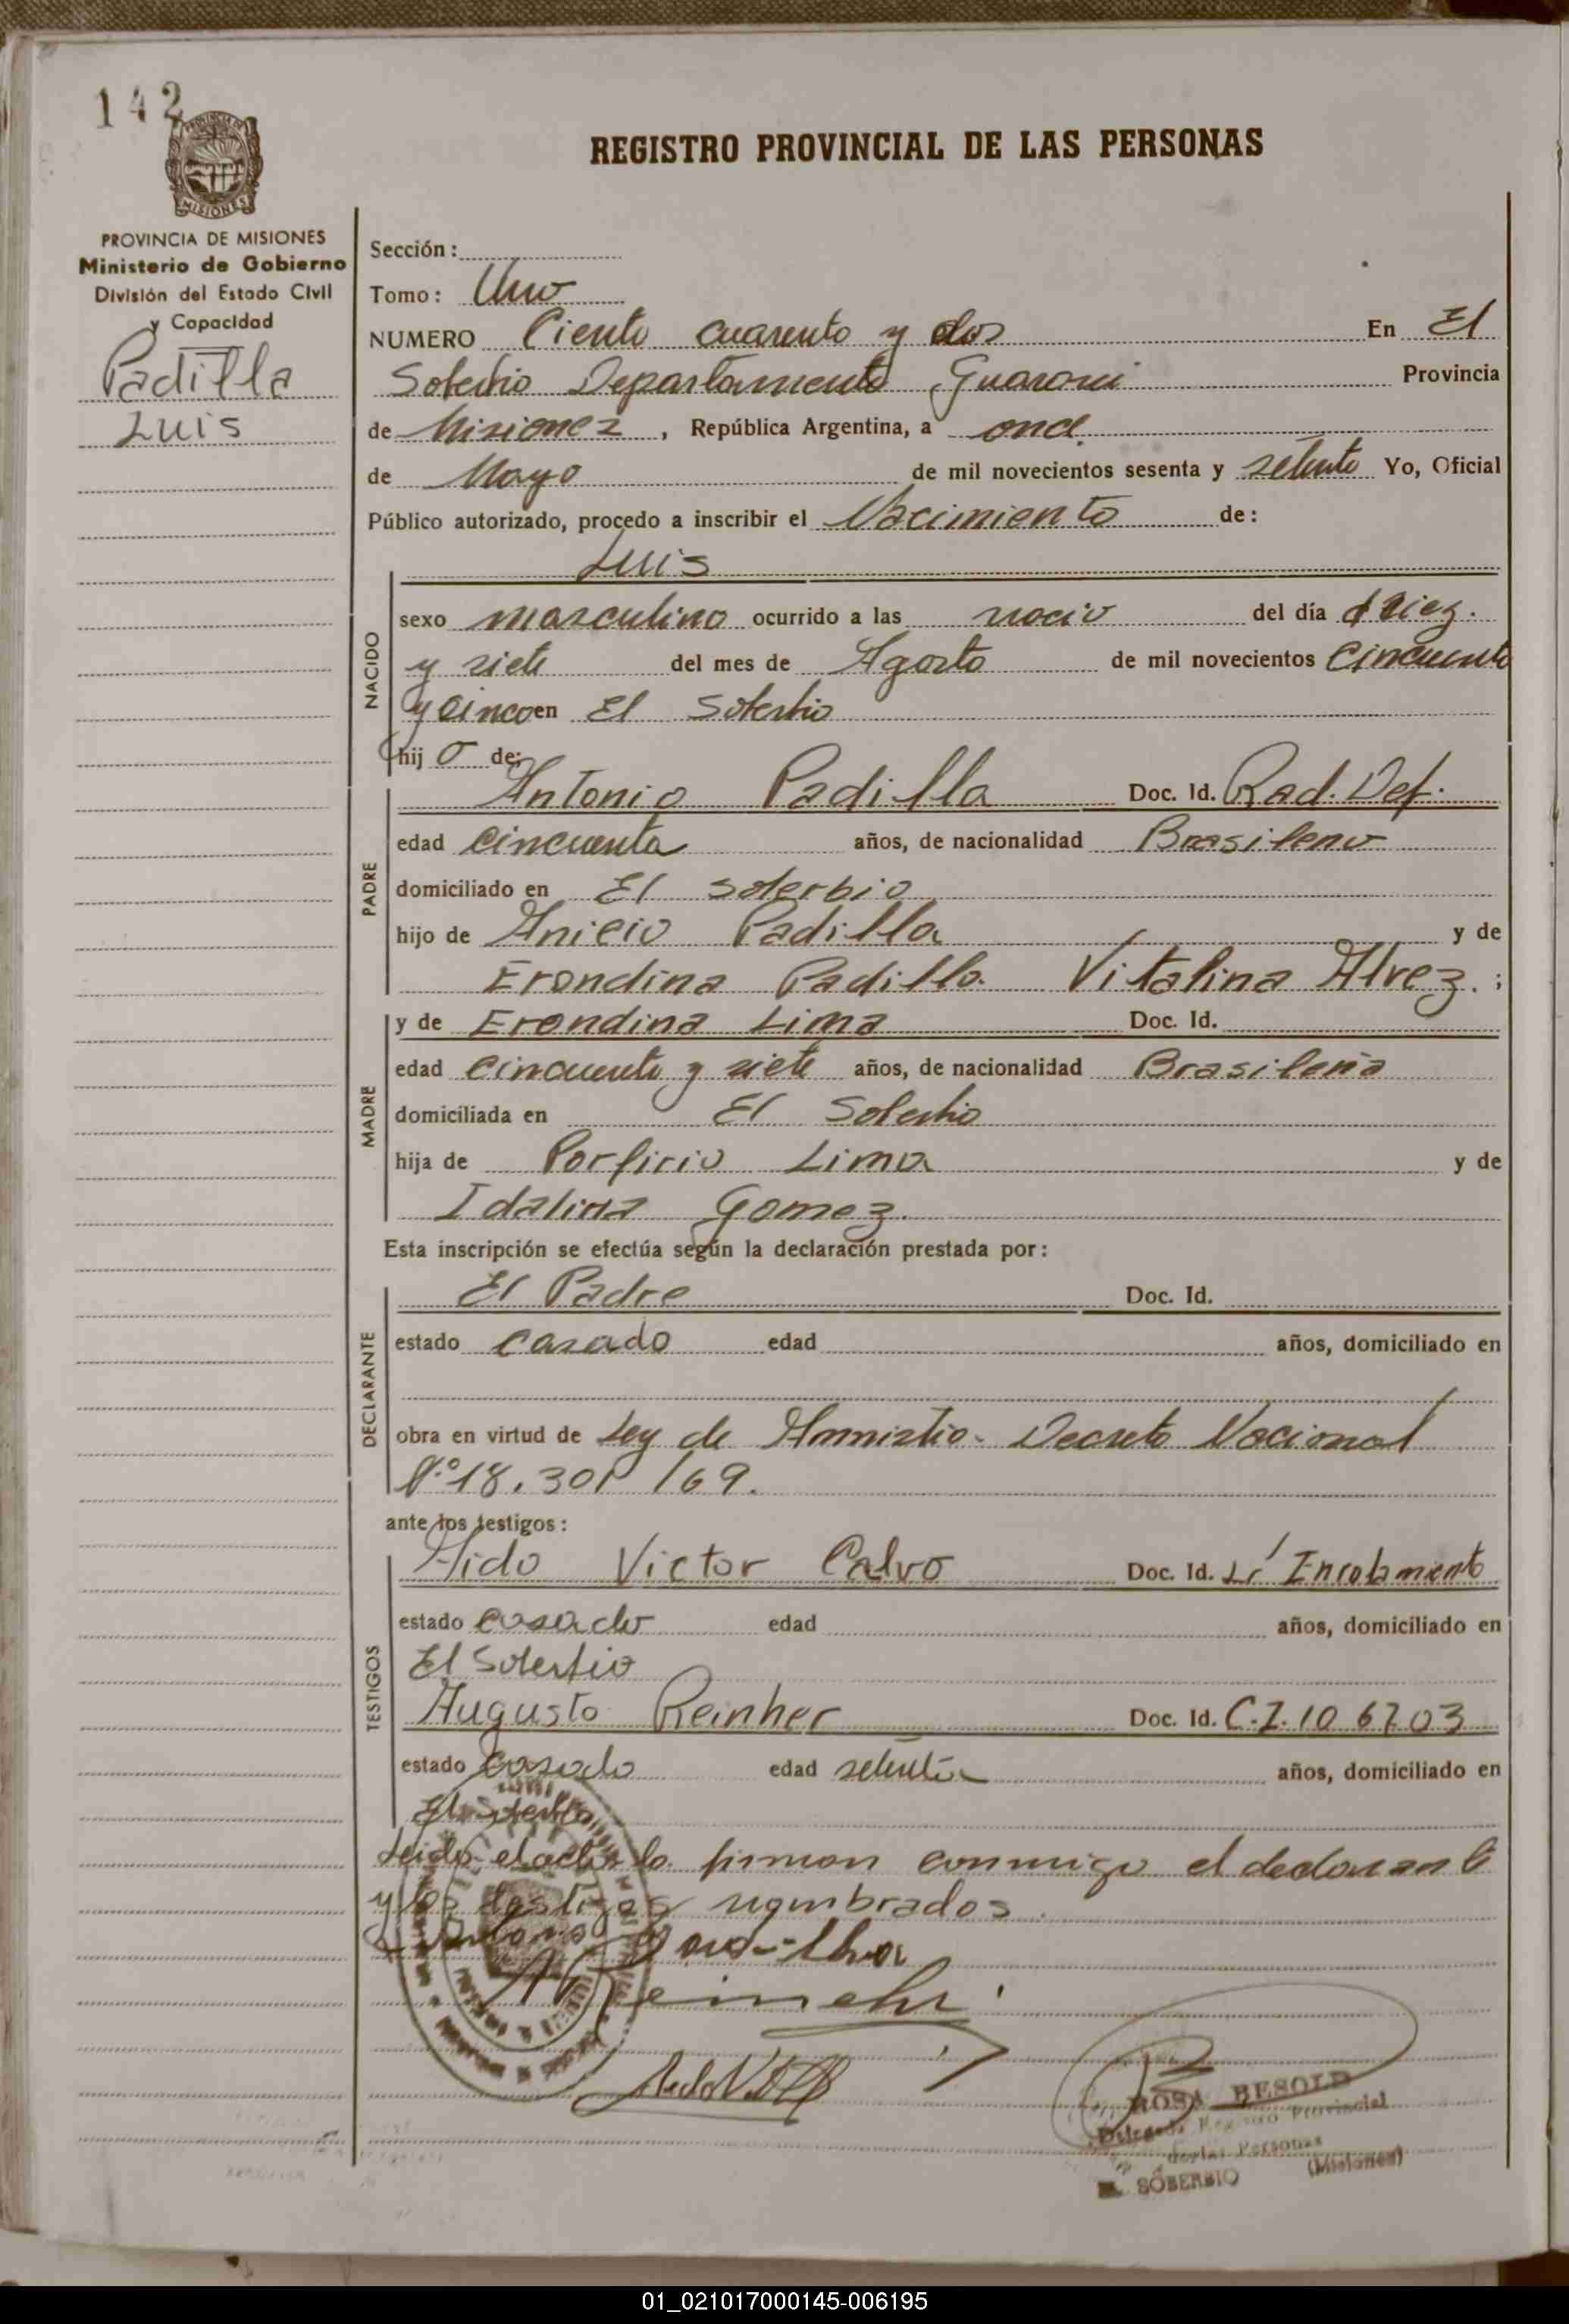 142
REGISTRO PROVINCIAL DE LAS PERSONAS
MISIONES
PROVINCIA DE MISIONES
Ministerio de Gobierno
División del Estado Civil
y Capacidad
Padilla
Luis
Sección:
Tomo: Uno
NUMERO Ciento cuarenta y dos En El
Soberbio Departamento Guarani Provincia
de Misiones, República Argentina, a once
de Mayo de mil novecientos sesenta y setenta Yo, Oficial
Público autorizado, procedo a inscribir el Nacimiento de:
Luis
NACIDO
sexo masculino ocurrido a las nacio del día diez
y siete del mes de Agosto de mil novecientos Cincuenta
y cinco en El Soberbio
hijo de:
PADRE
Antonio Padilla Doc. Id. Rad. Def.
edad cincuenta años, de nacionalidad Brasileno
domiciliado en El Soberbio
hijo de Anicio Padilla y de
Erondina Padilla. Vitalina Alvez. ;
MADRE
y de Erondina Lima Doc. Id.
edad cincuenta y siete años, de nacionalidad Brasileña
domiciliada en El Soberbio
hija de Porfirio Lima y de
Idalina Gomez.
Esta inscripción se efectúa según la declaración prestada por:
DECLARANTE
El Padre Doc. Id.
estado casado edad años, domiciliado en
obra en virtud de Ley de Amnistia- Decreto Nacional
Nº18.301/69.
ante los testigos:
TESTIGOS
Aldo Victor Calvo Doc. Id. Enrolamiento
estado casado edad años, domiciliado en
El Soberbio
Augusto Reinher Doc. Id. C.I. 106703
estado Casado edad setenta años, domiciliado en
El Soberbio
Leido el acta la firman conmigo el declarante
y los testigos nombrados.
ROSA BESOLD
Delegada Registro Provincial
de las Personas
SOBERBIO (Misiones)
01_021017000145-006195